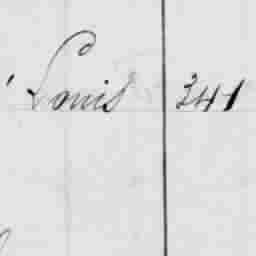 Louis 341